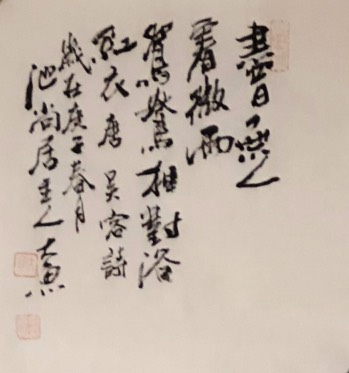 盡日無人
看微雨
鴛鴦相對浴
紅衣 唐 吴 詩
歲在庚子春月
池尚居主人